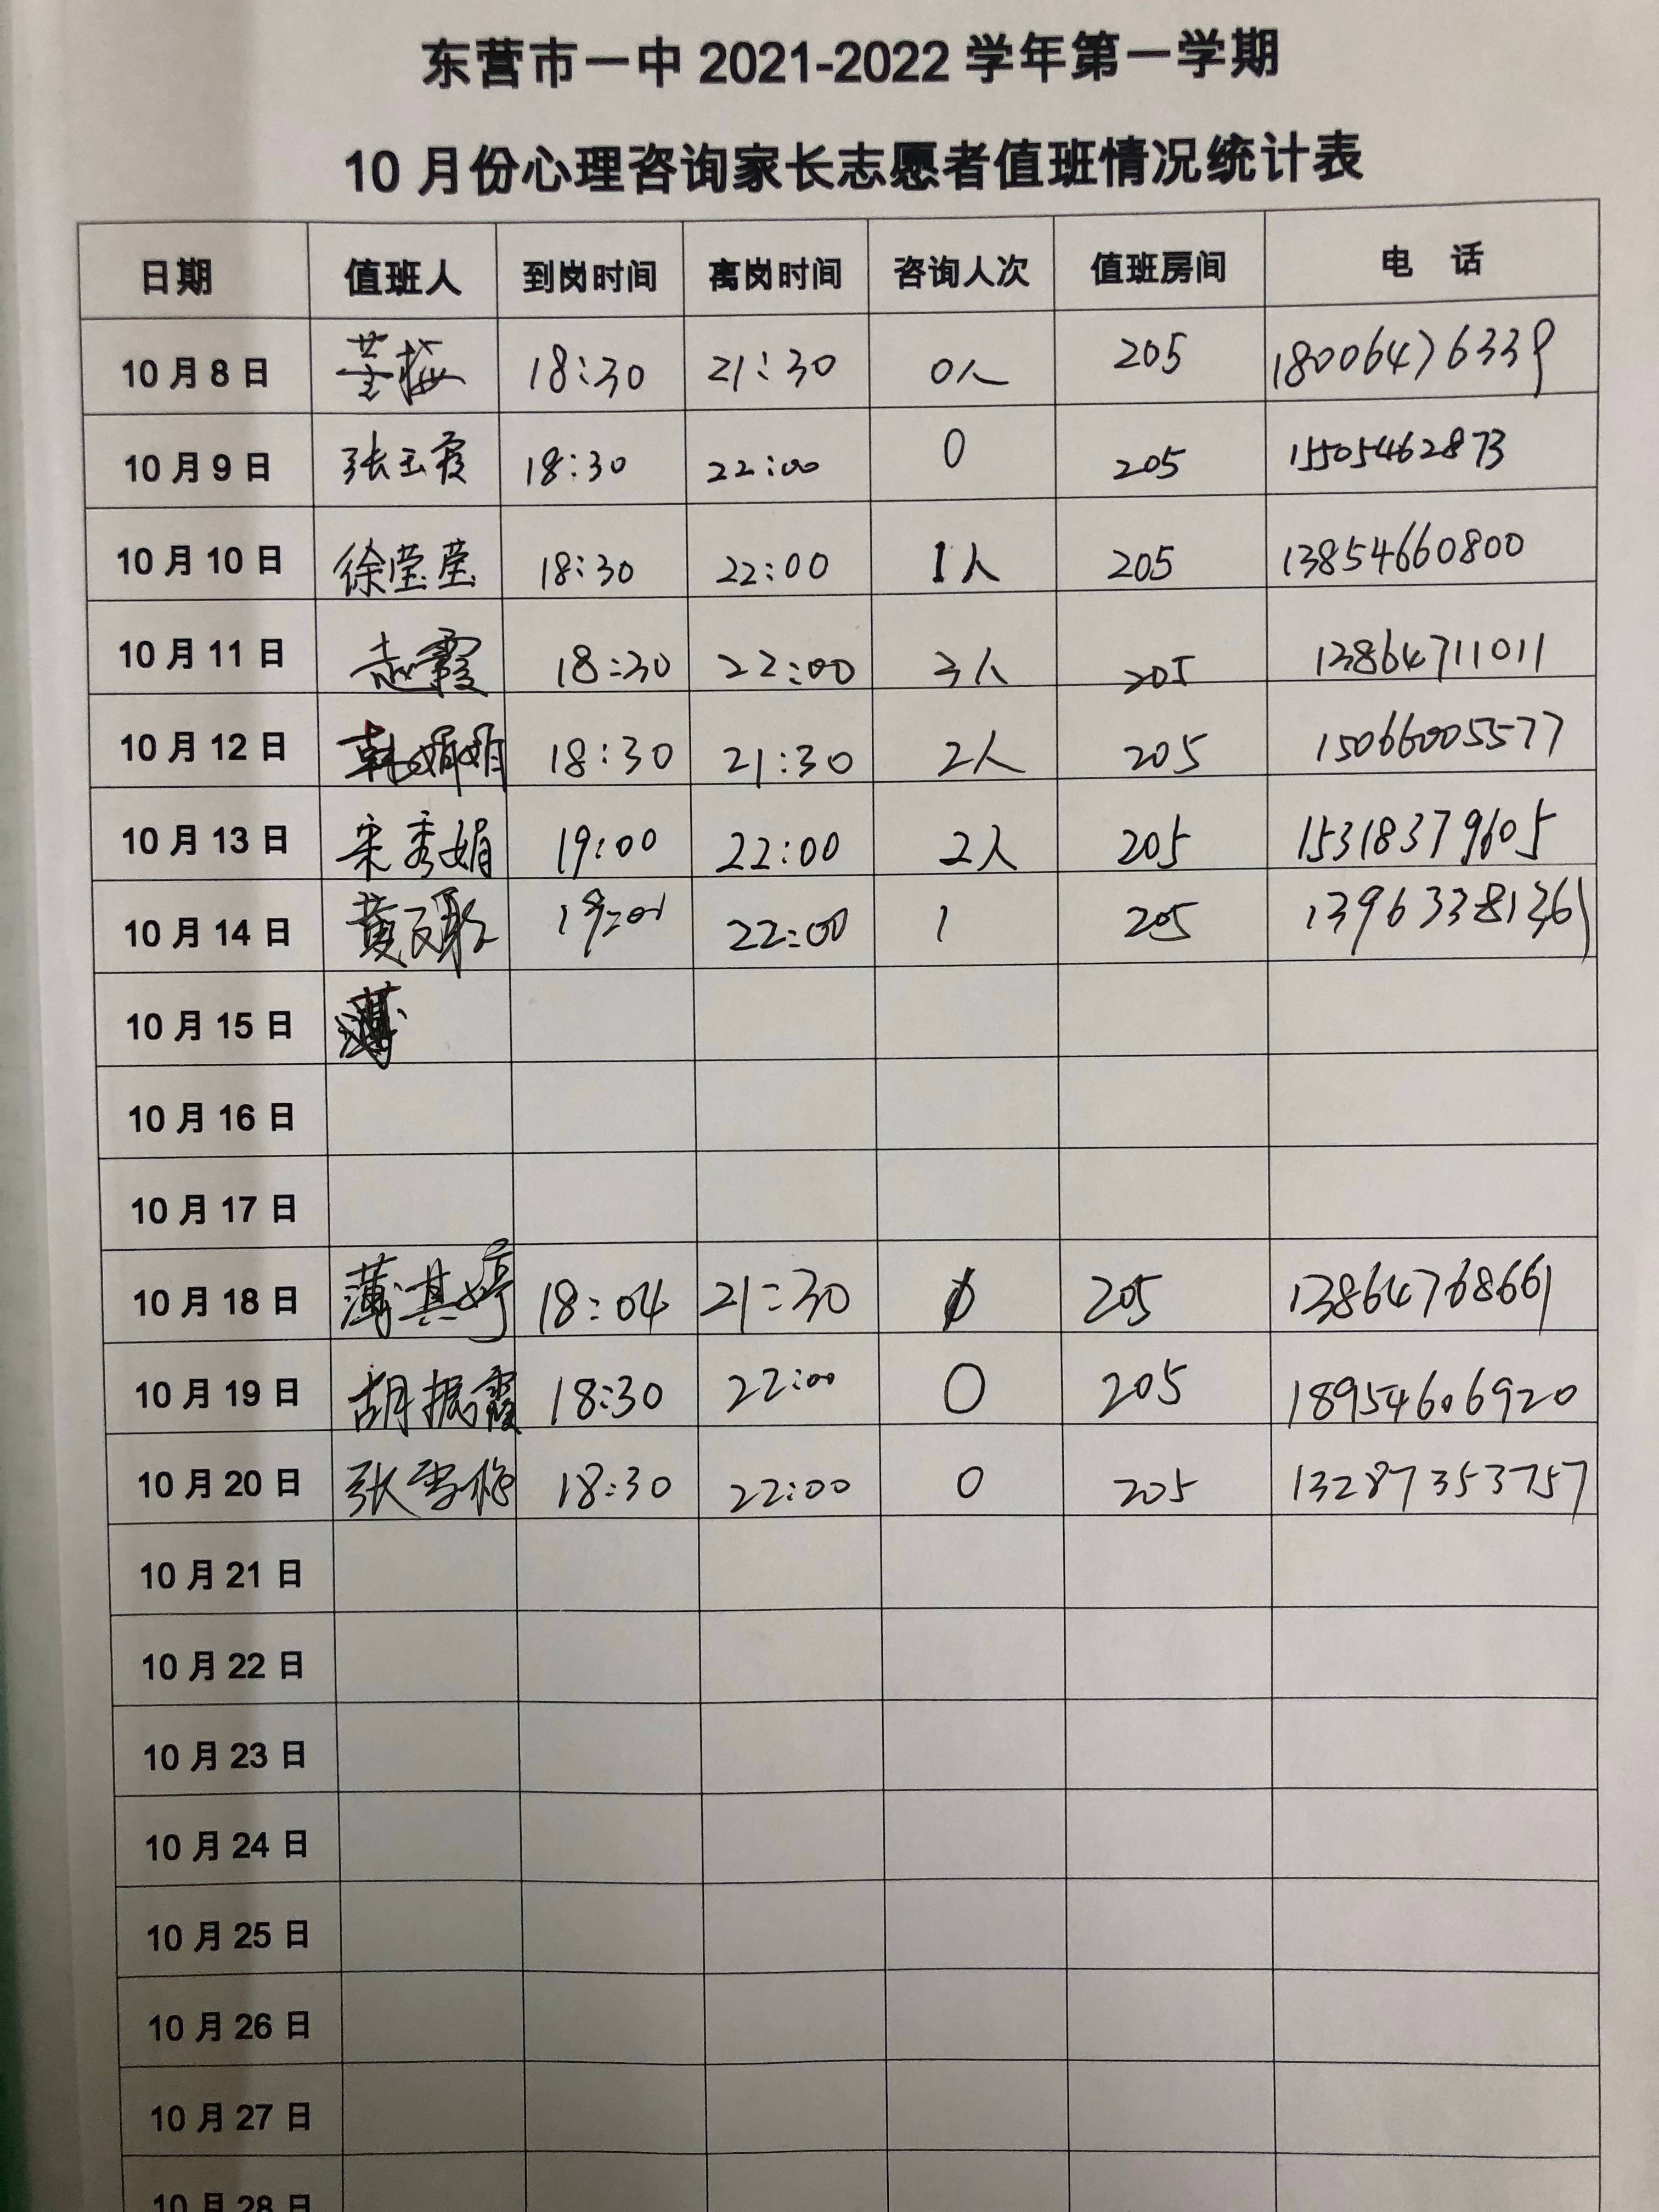 东营市一中 2021-2022 学年第一学期
10 月份心理咨询家长志愿者值班情况统计表
日期 值班人 到岗时间 离岗时间 咨询人次 值班房间 电 话
10 月 8 日 18:30 21:30 0人 205 18006476339
10 月 9 日 张玉霞 18:30 22:00 0 205 15505462873
10 月 10 日 徐莹莹 18:30 22:00 1人 205 13854660800
10 月 11 日 18:30 22:00 3人 205 13864711011
10 月 12 日 韩娟娟 18:30 21:30 2人 205 15066005577
10 月 13 日 宋秀娟 19:00 22:00 2人 205 15318379605
10 月 14 日 22:00 1 205
10 月 15 日
10 月 16 日
10 月 17 日
10 月 18 日 薄其婷 18:04 21:30 0 205 13864768661
10 月 19 日 胡振霞 18:30 22:00 0 205 18954606920
10 月 20 日 张雪梅 18:30 22:00 0 205 13287353757
10 月 21 日
10 月 22 日
10 月 23 日
10 月 24 日
10 月 25 日
10 月 26 日
10 月 27 日
10 月 28 日